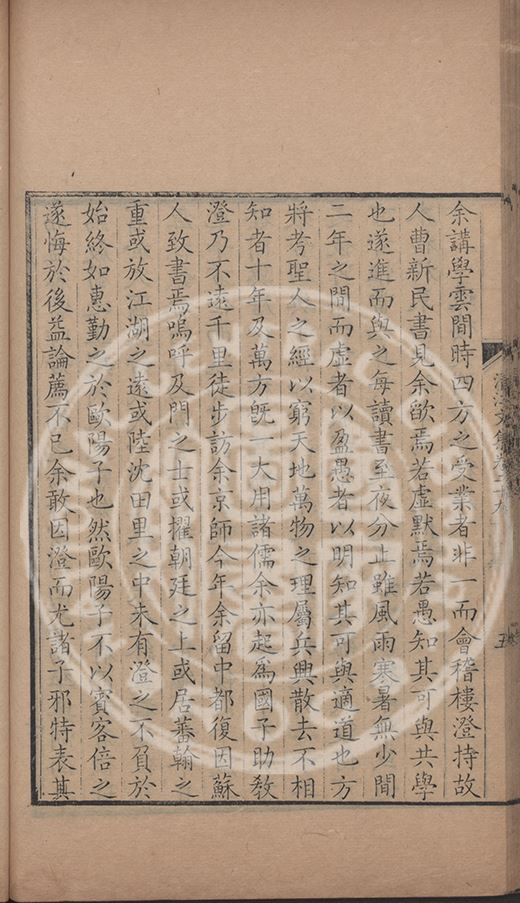 余講學雲間時四方之受業者非一而會稽樓澄持故
人曹新民書見余欲焉若虛默焉若愚知其可與共學
也遂進而與之每讀書至夜分止雖風雨寒暑無少間
二年之間而虛者以盈愚者以明知其可與適道也方
將考聖人之經以窮天地萬物之理屬兵興散去不相
知者十年及萬方旣一大用諸儒余亦起爲國子助敎
澄乃不遠千里徒步訪余京師今年余留中都復因蘇
人致書焉嗚呼及門之士或擢朝廷之上或居蕃翰之
重或放江湖之遠或陸沈田里之中未有澄之不負於
始終如惠勤之於歐陽子也然歐陽子不以賓客倍之
遂悔於後益論薦不已余敢因澄而尤諸子邪特表其
清江文集卷二十九
五